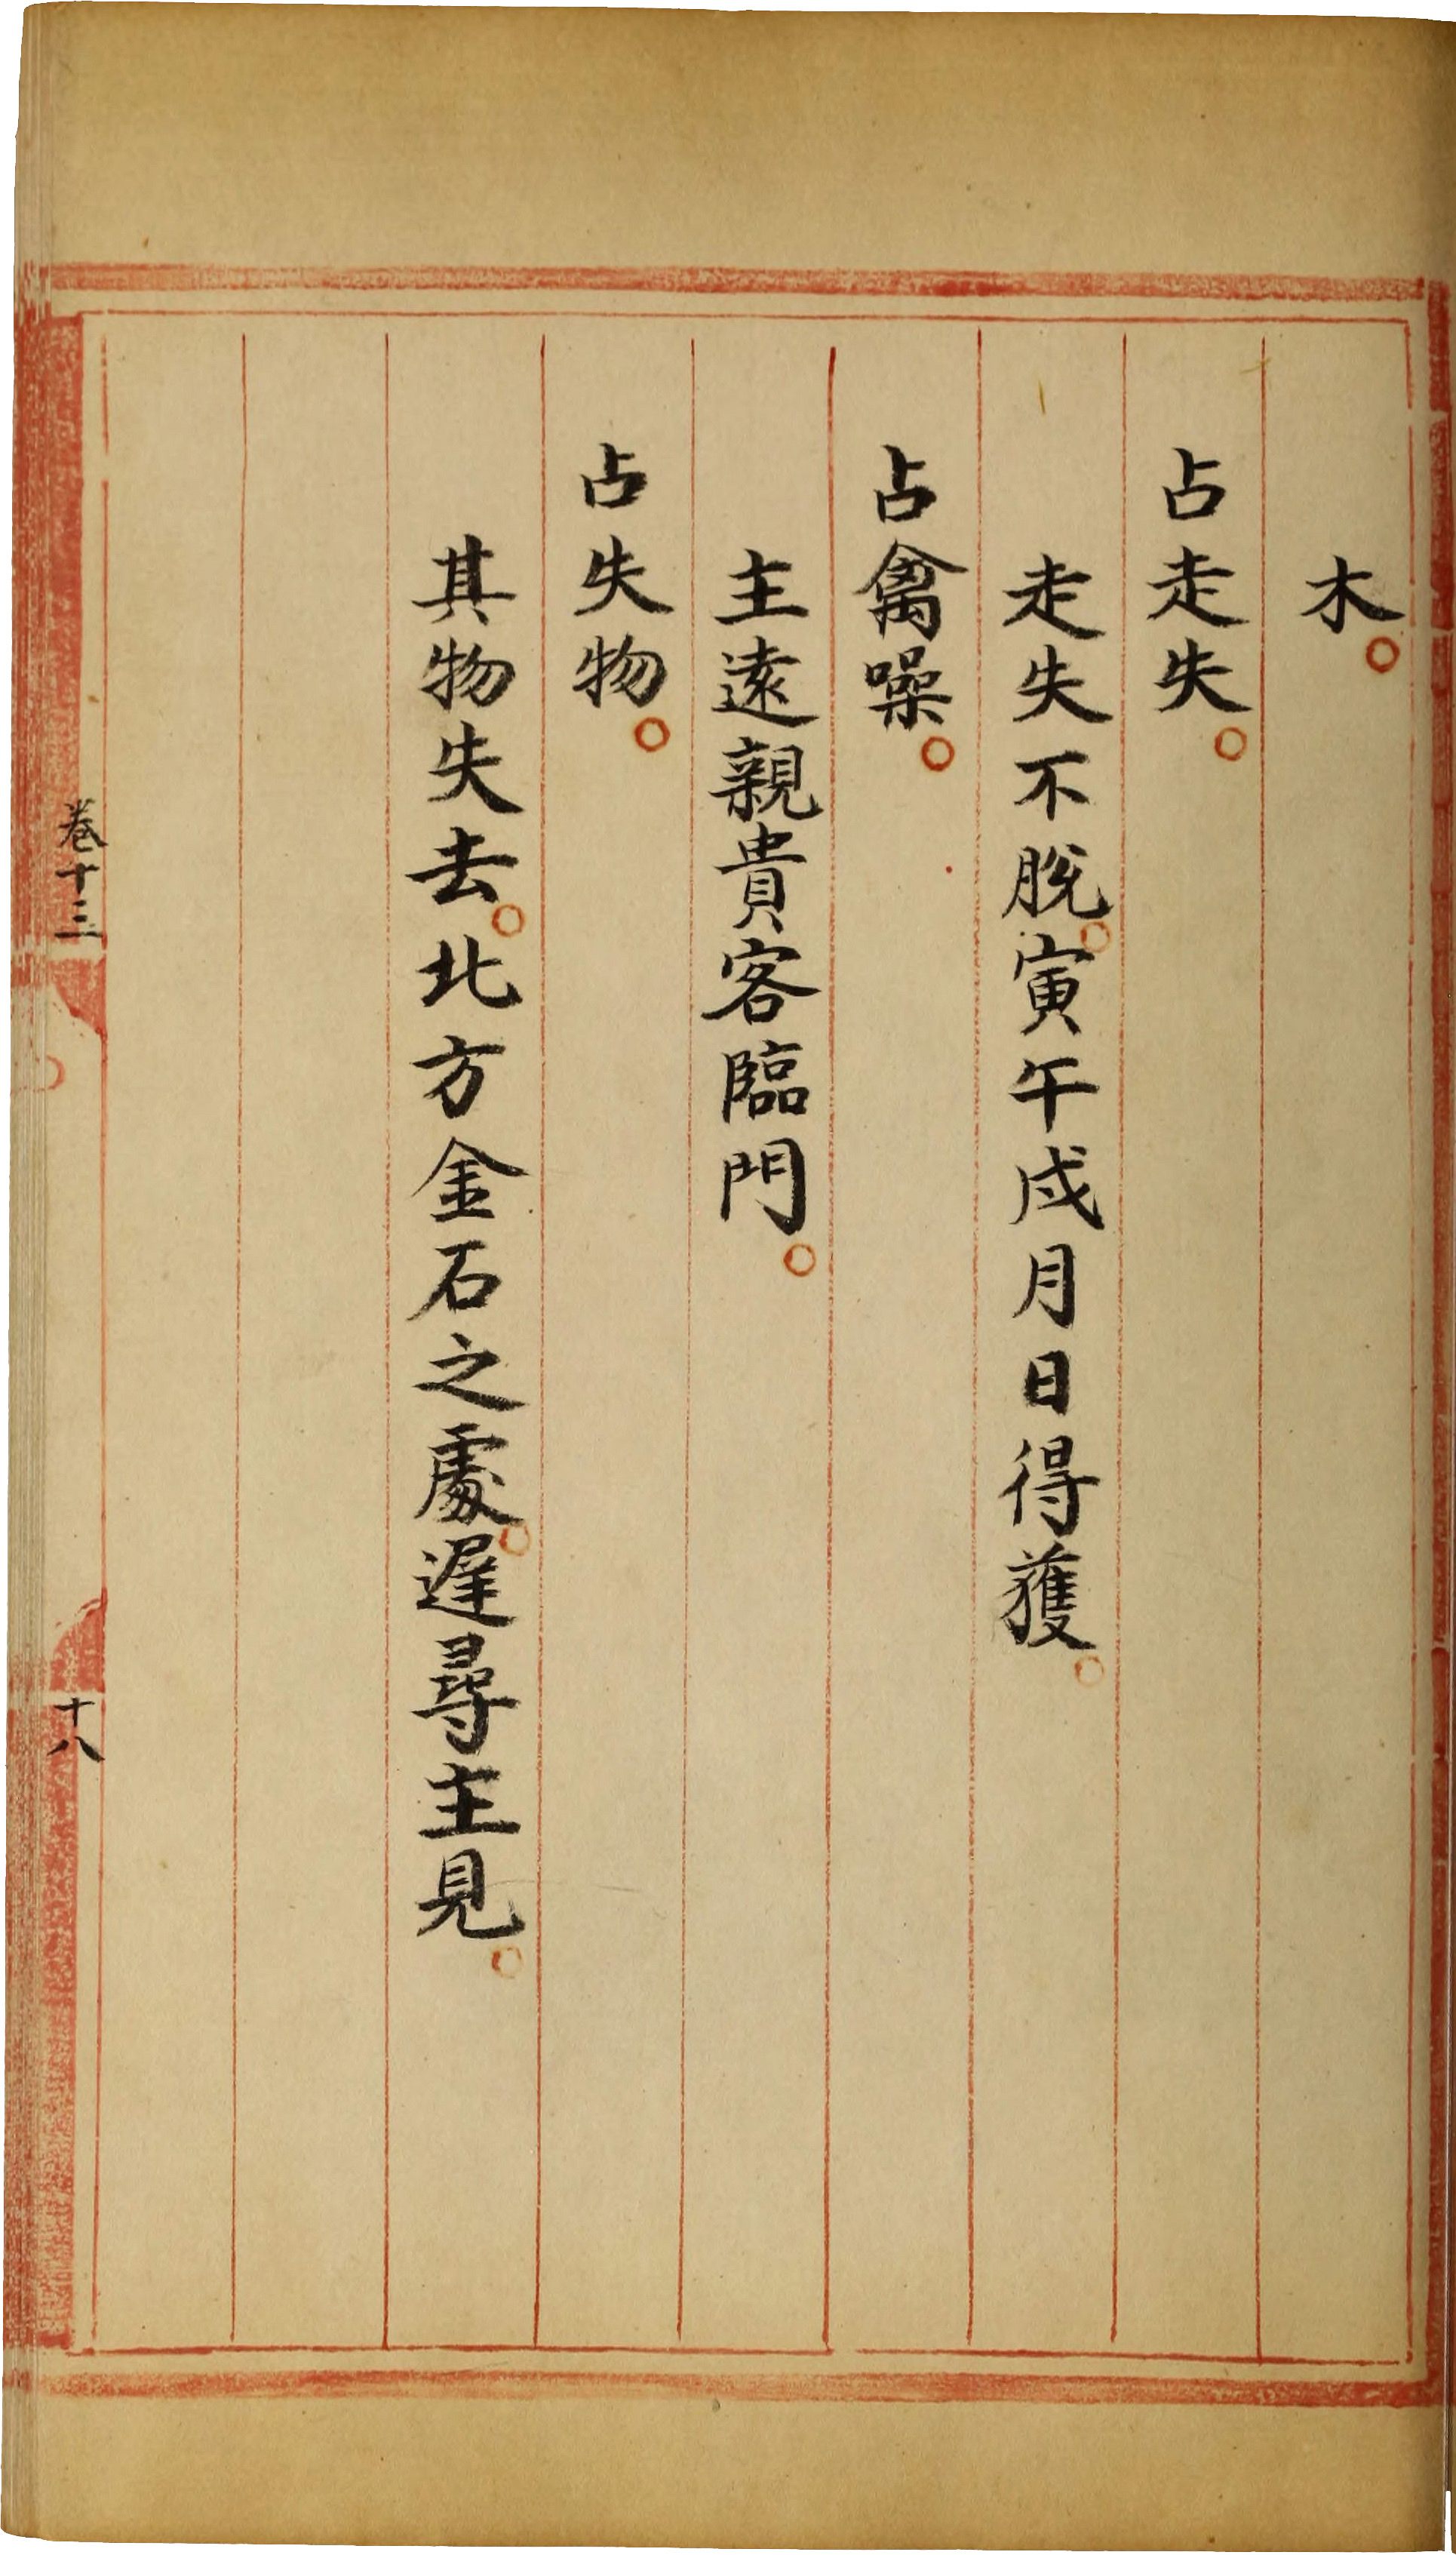 木。
占走失。
走失不脫。寅午戌月日得獲。
占禽噪。
主遠親貴客臨門。
占失物。
其物失去。北方金石之處。遲尋主見。
卷十三
十八